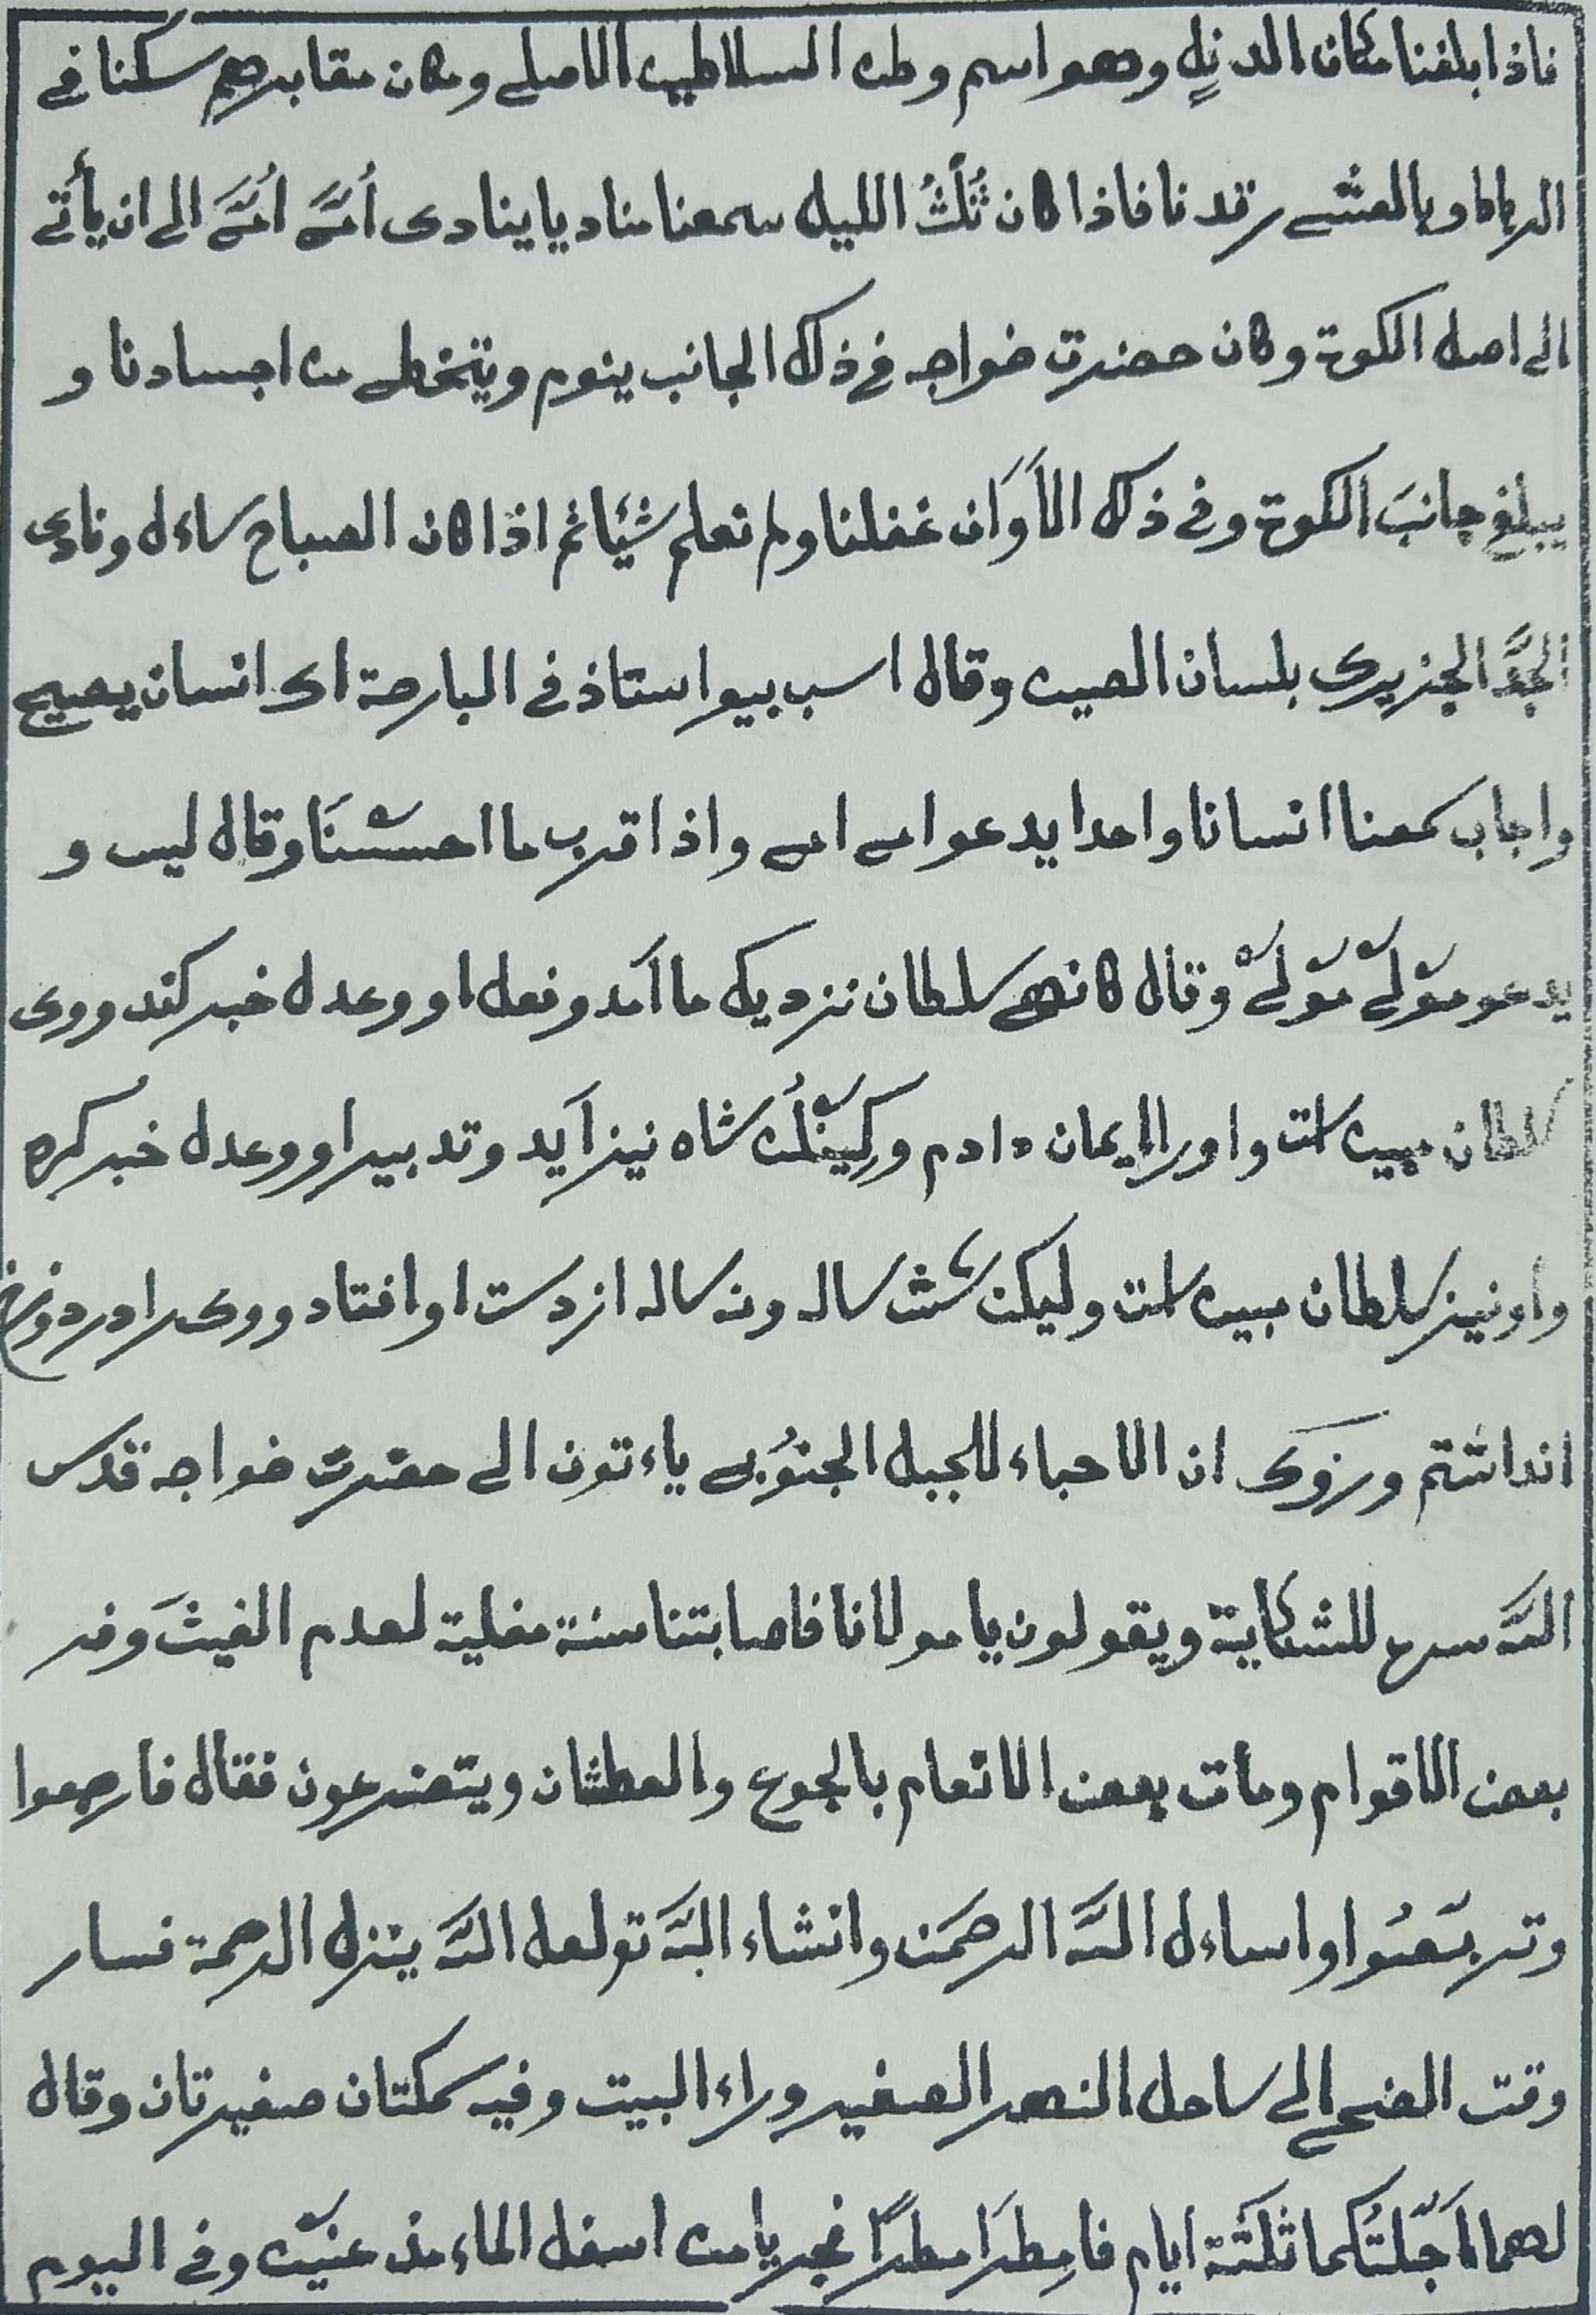 فاذا بلغنا مكان الدنلٍ وهو اسم وطن السلاطين الاصلى وكان مقابرهم سكنا فى
الرباط وبالعشى رقدنا فاذا كان ثُلُثُ الليل سمعنا مناديا ينادى أمَّى اُمَّى الى ان يأتى
الى اصل الكوة وكان حضرت خواجه فى ذلك الجانب ينوم ويتخطى من اجسادنا و
يبلغ جانبَ الكوة وفى ذلك الاَوَان غفلنا ولم نعلم شيئا ثم اذا كان الصباح ساءل ونادى
الجدَّ الجزيرى بلسان الصين وقال اسب بيوا ستاذ فى البارحة اى انسان يصيح
واجاب سمعنا انسانا واحدا يدعو امى امى واذا قرب ما احسسنَا وقال ليس و
يدعو مولى مولى وقال كانهى سلطان نزديك ما آمد ونعل او وعدل خبر كند ووى
سلطان مبين است واورا ايمان دادم وكِينلُن شاه نيز آيد وتدبير او وعدل خبر كره
واو نيز سلطان مبين است وليكن شش ساله ونه ساله از دست او افتاد ووى را در دوزخ
انداشتم ورزوى ان الاحباء للجبل الجنُوبى ياءتون الى حضرت خواجه قدس
اللَّه سره للشكاية ويقولون يا مولانا فاصابتنا سنة مغلية لعدم الغيثَ وفر
بعض الاقوام ومأت بعض الانعام بالجوع والعطشان ويتضرعون فقال فارجعوا
وتربَّصُوا واساءل اللَّه الرحمَن وانشاء اللَّه تو لعل اللَّه ينزل الرحمة فسار
وقت الضحى الى ساحل النهر الصغير وراء البيت وفيه سمكتان صغيرتان وقال
لهما اَجَّلتُكما ثلثَة ايام فامِطرَا مطرًا فجريا من اسفل الماء مذ عنيَّن وفى اليوم